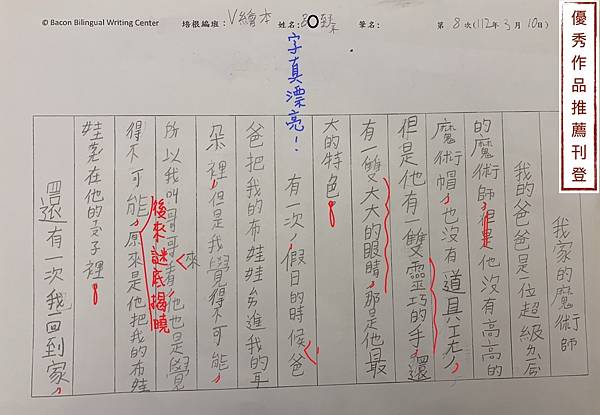 © Bacon Bilingual Writing Center 培根編班：V繪本 姓名： 筆名： 第 8 次(112年 3 月 10日)
優秀作品推薦刊登
字真漂亮！
我家的魔術師
我的爸爸是一位超級
的魔術師，但是他沒有高高的
魔術帽，也沒有道具
但是他有一雙靈巧的手，還
有一雙大大的眼睛，那是他最
大的特色。
有一次，假日的時候，爸
爸把我的布娃娃ㄙㄞ進我的耳
朵裡，但是我覺得不可能，
所以我叫哥哥來看，他也是覺
後來謎底揭曉
得不可能，原來是他把我的布娃
娃 在他的 子裡。
還有一次我一回到家，